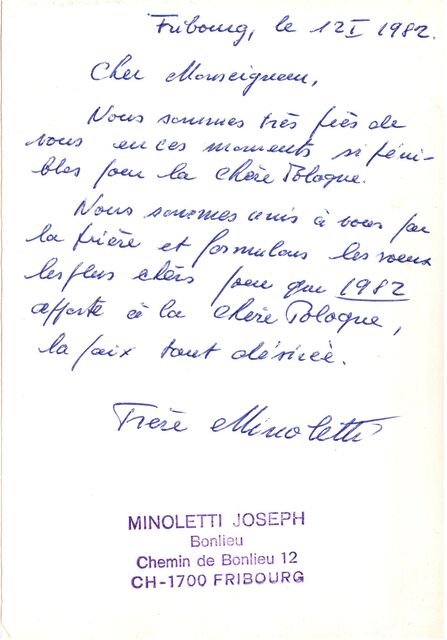 Fribourg, le 12 I 1982.
Cher Monseigneur,
Nous sommes très près de
vous en ces moments si péni-
bles pour la chère Pologne.
Nous sommes unis à vous par
la prière et formulons les voeux
les plus chers pour que 1982
apporte à la chère Pologne,
la paix tant désirée.
Frère Minoletti
MINOLETTI JOSEPH
Bonlieu
Chemin de Bonlieu 12
CH-1700 FRIBOURG